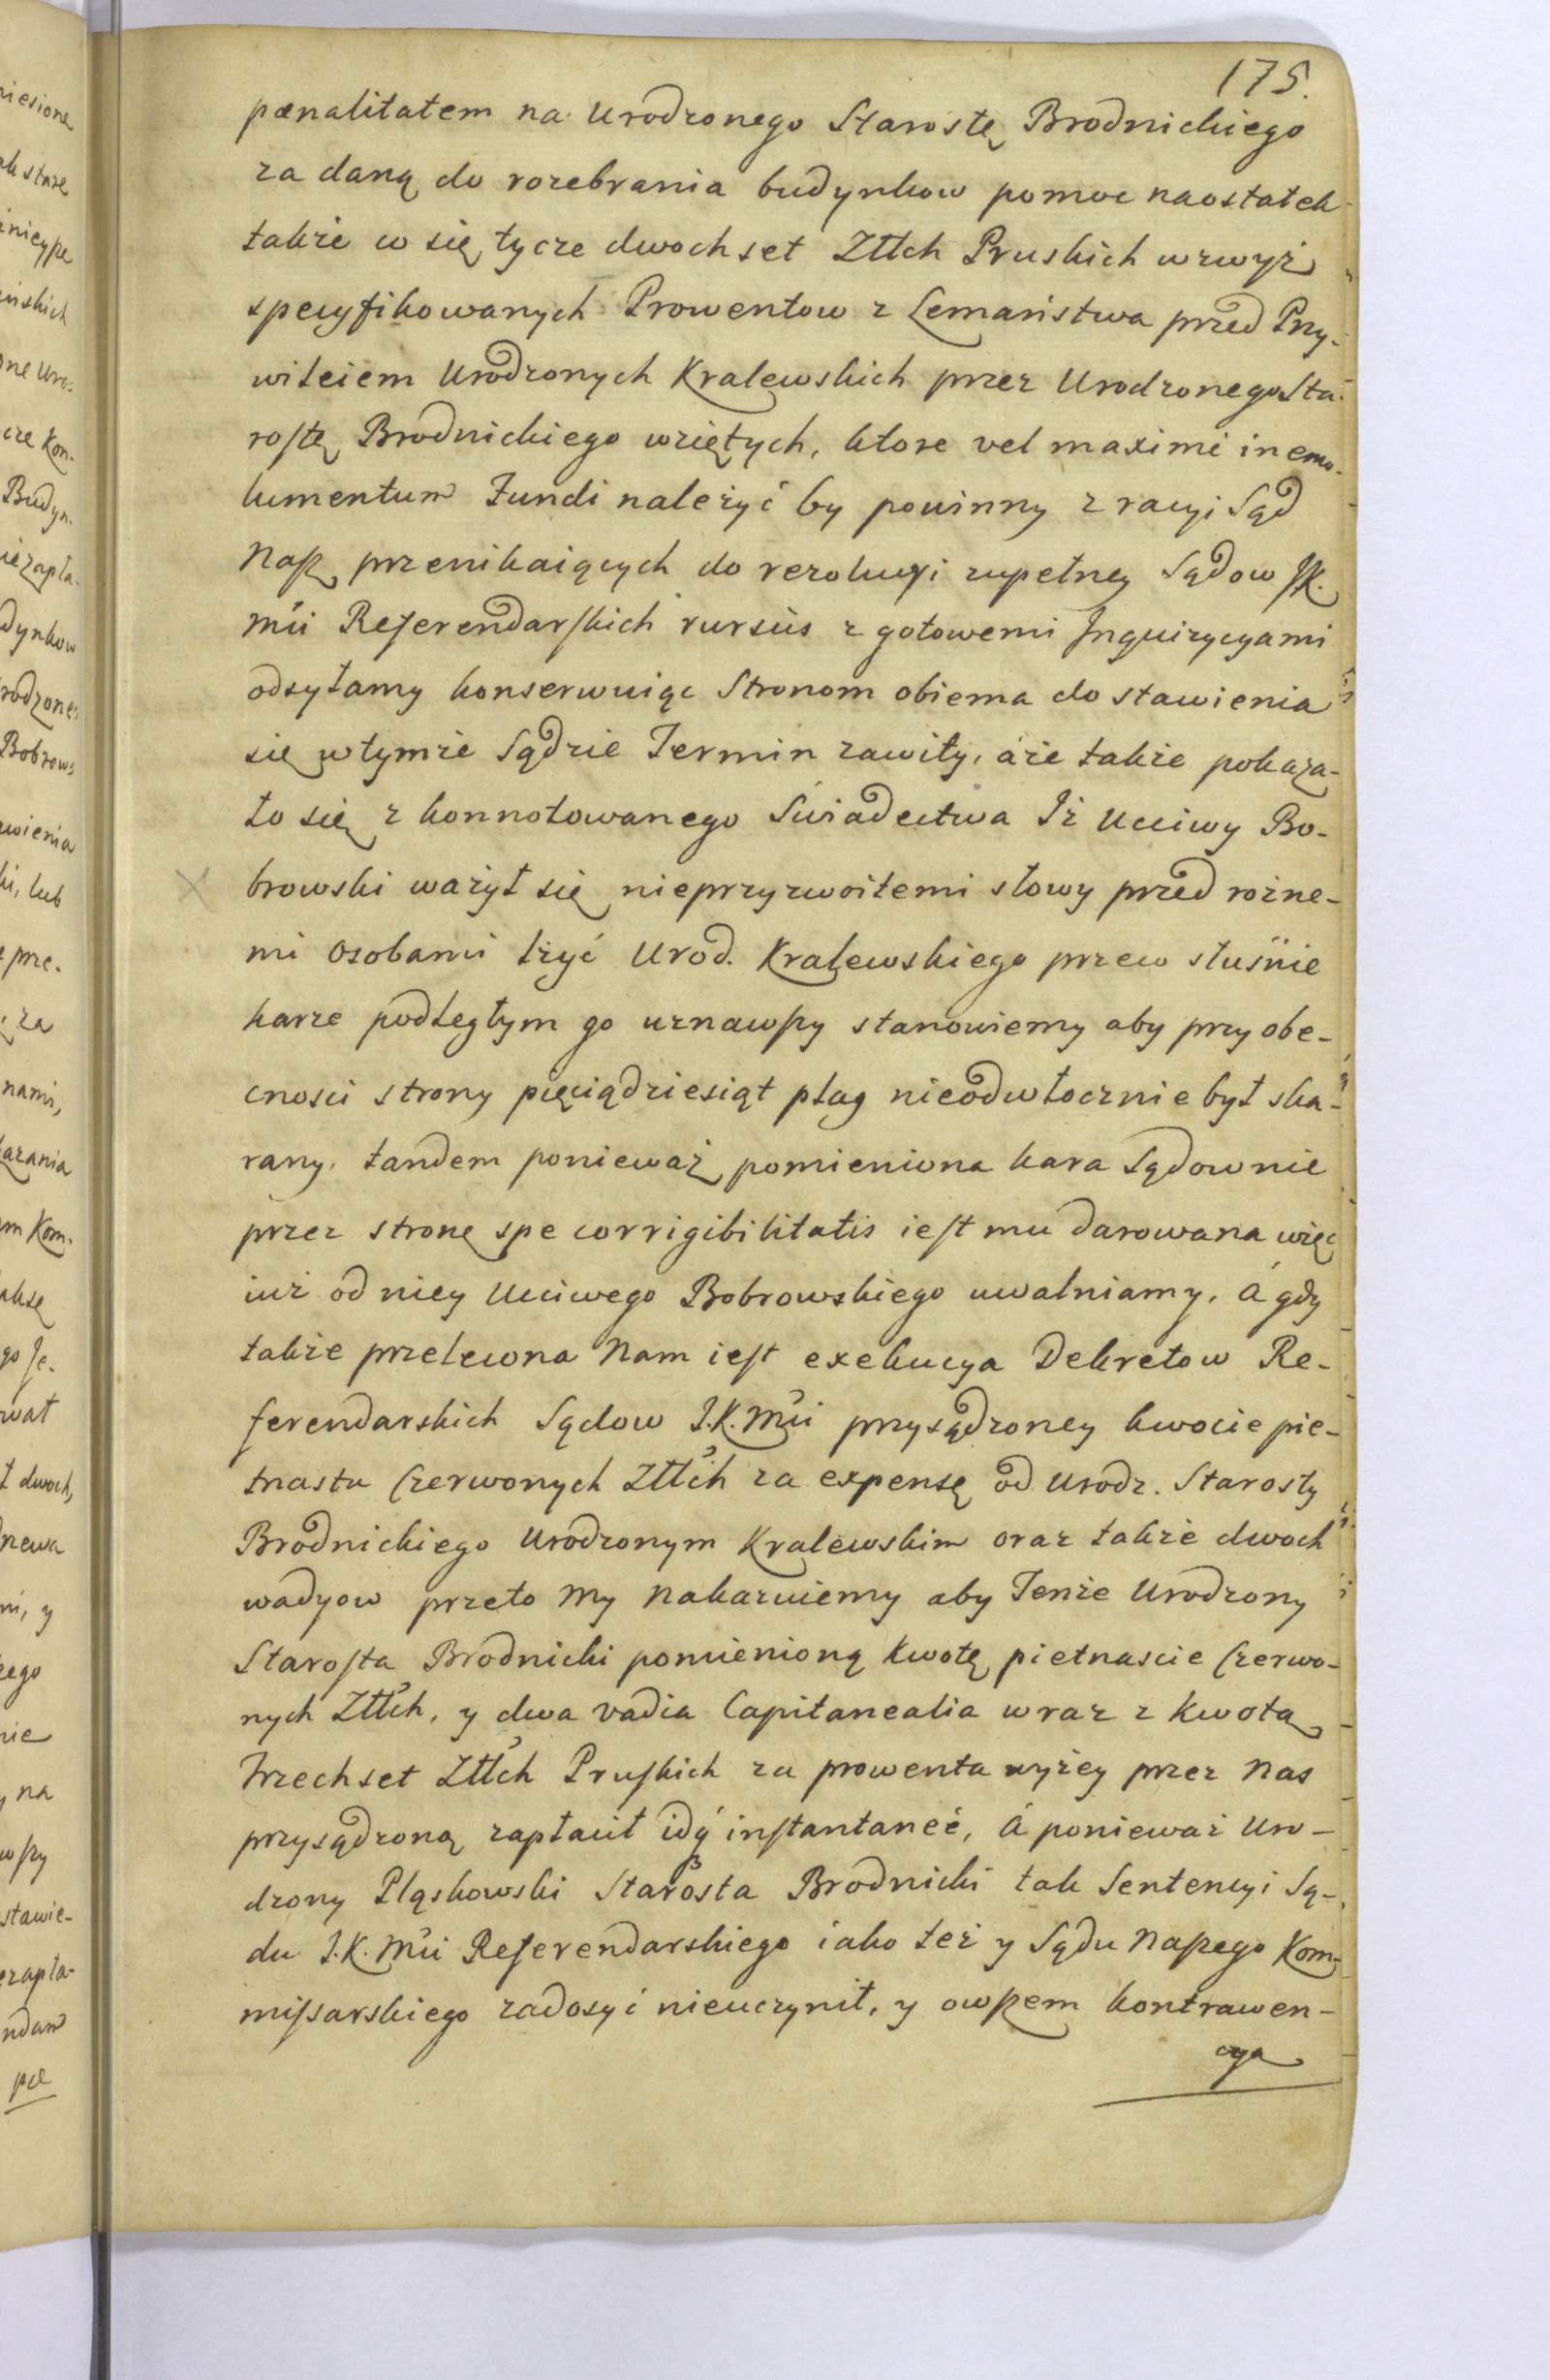 175.
pænalitatem na Urodzonego Starostę Brodnickiego
za daną do rozebrania budynkow pomoc naostatek
także co się tycze dwochset Złłch Pruskich wzwyż
specyfikowanych Prowentow z Lemaństwa przed Przy-
wileiem Urodzonych Kralewskich przez Urodzonego Sta-
rostę Brodnickiego wziętych, ktore vel maximè in emo-
lumentum Fundi należyć by powinny z racyi Sąd
Nasz przenikaiących do rezolucyi zupełney Sądow JK.
Mći Referendarskich rursùs z gotowemi Inquizycyami
odsyłamy konserwuiąc Stronom obiema do stawienia
się wtymże Sądzie Termin zawiły, áże także pokaza-
ło się z konnotowanego Swiadectwa Iż Ucciwy Bo-
browski ważył się nieprzyzwoitemi słowy przed rożne-
mi Osobami lżyć Urod. Kralewskiego przeco słusnie
karze podległym go uznawszy stanowiemy aby przy obe-
cnosci strony pięciądziesiąt plag nieodwłocznie był ska-
rany. tandem ponieważ pomieniona kara Sądownie
przez stronę spe corrigibilitatis iest mu darowana więc
iuż od niey Ucciwego Bobrowskiego uwalniamy. á gdy
także przelewona Nam iest exekucya Dekretow Re-
ferendarskich Sądow J.K.Mći przysądzoney kwocie pie-
tnastu Czerwonych Złłch za expensę od Urodz. Starosty
Brodnickiego Urodzonym Kralewskim oraz także dwoch
wadyow przeto My Nakazuiemy aby Tenże Urodzony
Starosta Brodnicki pomienioną kwotę pietnascie Czerwo-
nych Złłch, y dwa vadia Capitanealia wraz z kwotą
Trzechset Złłch Pruskich za prowenta wyżey przez Nas
przysądzoną zapłacił idq́ instantaneè, á ponieważ Uro-
dzony Pląskowski Starosta Brodnicki tak Sentencyi Są-
du J.K.Mći Referendarskiego iako też y Sądu Naszego Kom-
missarskiego zadosyć nieuczynił, y owszem kontrawen-
cya